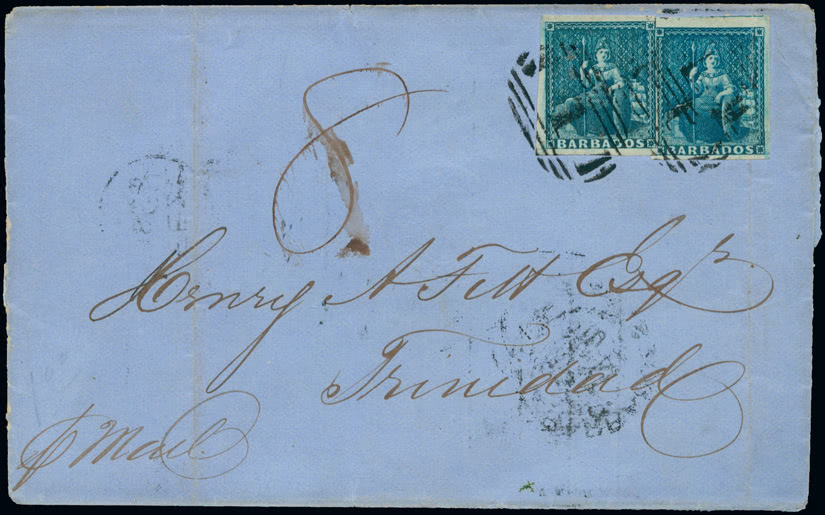 BARBADOS BARBADOS
8
Henry A Fitt Esqr.
Trinidad
p Mail.